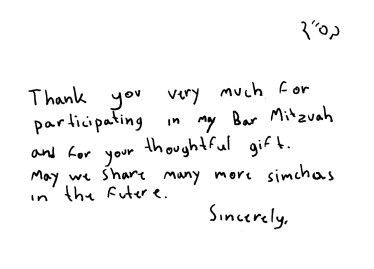 בס"ד
Thank you very much for
participating in my Bar Mitzvah
and for your thoughtful gift.
May we share many more simchas
in the future.
Sincerely,